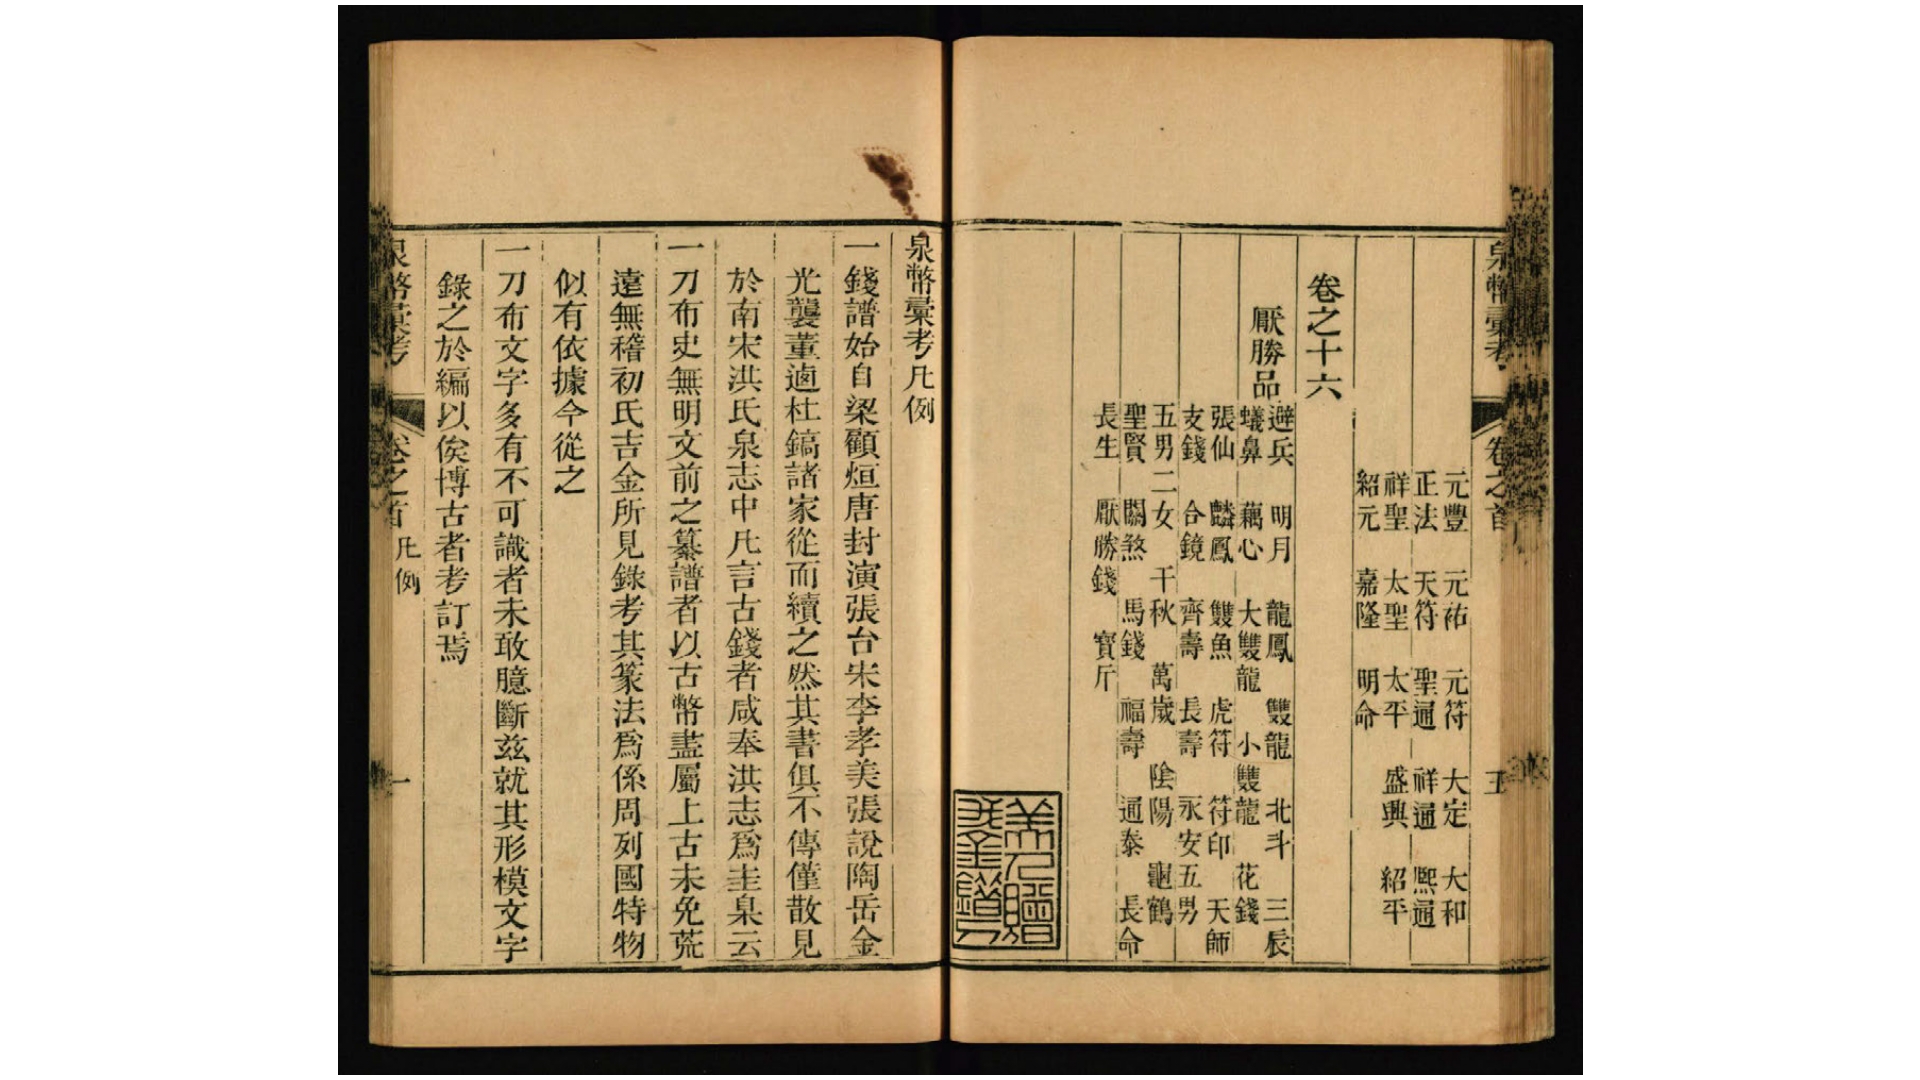 泉幣彙考 卷之首 五
元豐 元祐 元符 大定 大和
正法 天符 聖通 祥通 熙通
祥聖 太聖 太平 盛興 紹平
紹元 嘉隆 明命
卷之十六
厭勝品
避兵 明月 龍鳳 雙龍 北斗 三辰
蟻鼻 藕心 大雙龍 小雙龍 花錢
張仙 麟鳳 雙魚 虎符 符印 天師
支錢 合鏡 齊壽 長壽 永安五男
五男二女 千秋 萬歲 陰陽 龜鶴
聖賢 關煞 馬錢 福壽 通泰 長命
長生 厭勝錢 寶斤
美人贈
我金錯刀
泉幣彙考凡例
一錢譜始自梁顧烜唐封演張台宋李孝美張說陶岳金
光襲董逌杜鎬諸家從而續之然其書俱不傳僅散見
於南宋洪氏泉志中凡言古錢者咸奉洪志爲圭臬云
一刀布史無明文前之纂譜者以古幣盡屬上古未免荒
遠無稽初氏吉金所見錄考其篆法爲係周列國特物
似有依據今從之
一刀布文字多有不可識者未敢臆斷茲就其形模文字
錄之於編以俟博古者考訂焉
泉幣彙考 卷之首 凡例 一